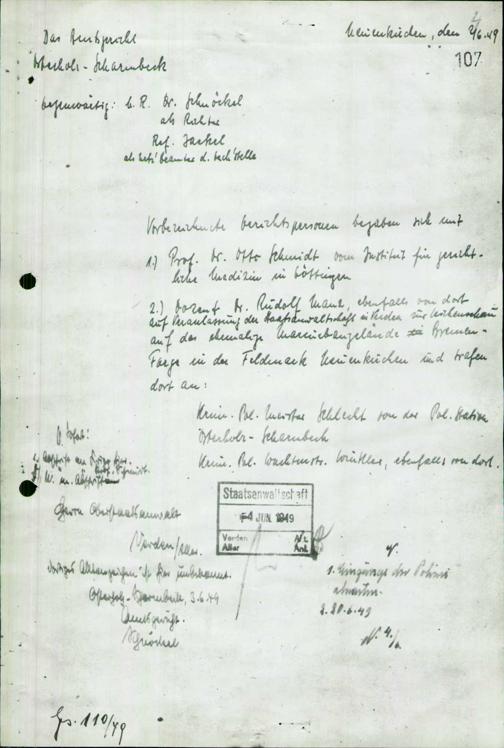 Das Amtsgericht
Osterholz-Scharmbeck
Neuenkirchen, den 2/6.49
107
Gegenwärtig: G. R. Dr. Schnöckel
als Richter
Ref. Jaekel
als Urk. Beamter d. Gesch. Stelle
Vorbezeichnete Gerichtspersonen begaben sich mit
1.) Prof. Dr. Otto Schmidt vom Institut für gericht-
liche Medizin in Göttingen
2.) Dozent Dr. Rudolf Manz, ebenfalls von dort
auf Veranlassung der Staatsanwaltschaft in Verden zur Leichenschau
auf das ehemalige Marinebaugelände in Bremen-
Farge in der Feldmark Neuenkirchen und trafen
dort an:
Krim. Pol. Meister Schlecht von der Pol. Station
Osterholz-Scharmbeck
Krim. Pol. Wachtmstr. Winkler, ebenfalls von dort.
Herrn Oberstaatsanwalt
Verden/Aller.
Dortiges Aktenzeichen ist hier unbekannt.
Osterholz-Scharmbeck, 3.6.49
Amtsgericht.
Schnöckel
Staatsanwaltschaft
-4. JUN. 1949
Verden
Aller
Anl.
V.
1. Eingänge der Polizei
abwarten.
2. 20.6.49
Gs. 110/49